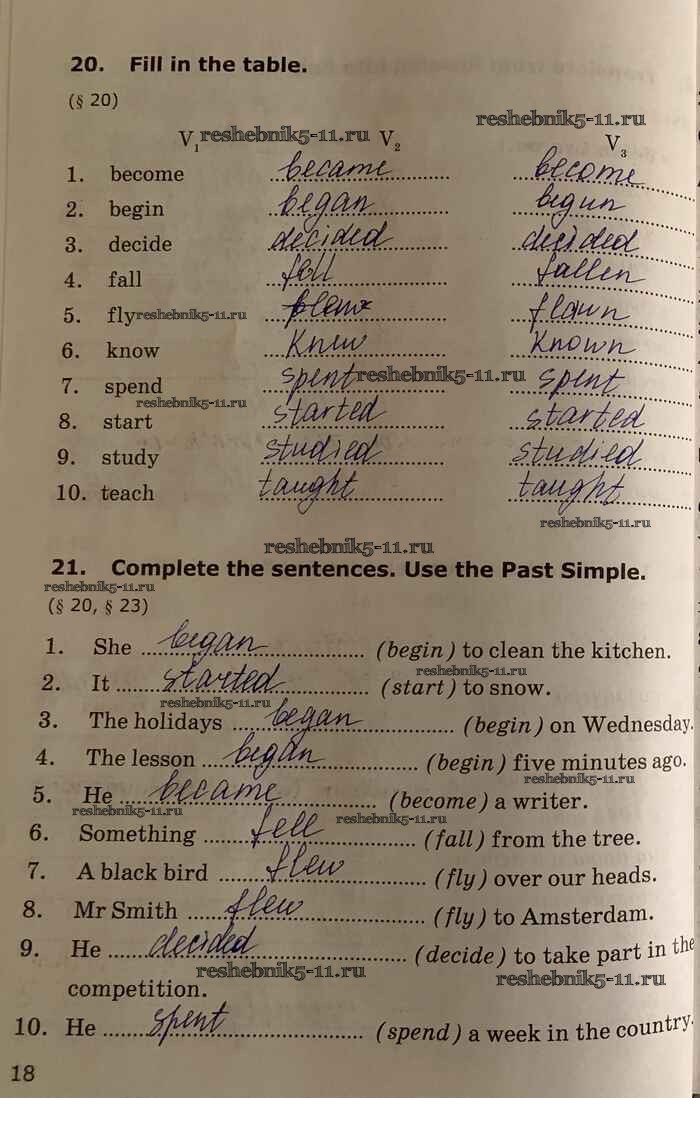 20. Fill in the table.
(§ 20)
reshebnik5-11.ru
V1 reshebnik5-11.ru V2 V3
1. become became become
2. begin began begun
3. decide decided decided
4. fall fell fallen
5. fly reshebnik5-11.ru flown
6. know knew known
7. spend spent reshebnik5-11.ru spent
reshebnik5-11.ru
8. start started started
9. study studied studied
10. teach taught taught
reshebnik5-11.ru
reshebnik5-11.ru
21. Complete the sentences. Use the Past Simple.
reshebnik5-11.ru
(§ 20, § 23)
1. She began (begin) to clean the kitchen.
reshebnik5-11.ru
2. It started (start) to snow.
reshebnik5-11.ru
3. The holidays began (begin) on Wednesday.
4. The lesson began (begin) five minutes ago.
reshebnik5-11.ru
5. He became (become) a writer.
reshebnik5-11.ru reshebnik5-11.ru
6. Something fell (fall) from the tree.
7. A black bird flew (fly) over our heads.
8. Mr Smith flew (fly) to Amsterdam.
9. He decided (decide) to take part in the
reshebnik5-11.ru reshebnik5-11.ru
competition.
10. He spent (spend) a week in the country.
18